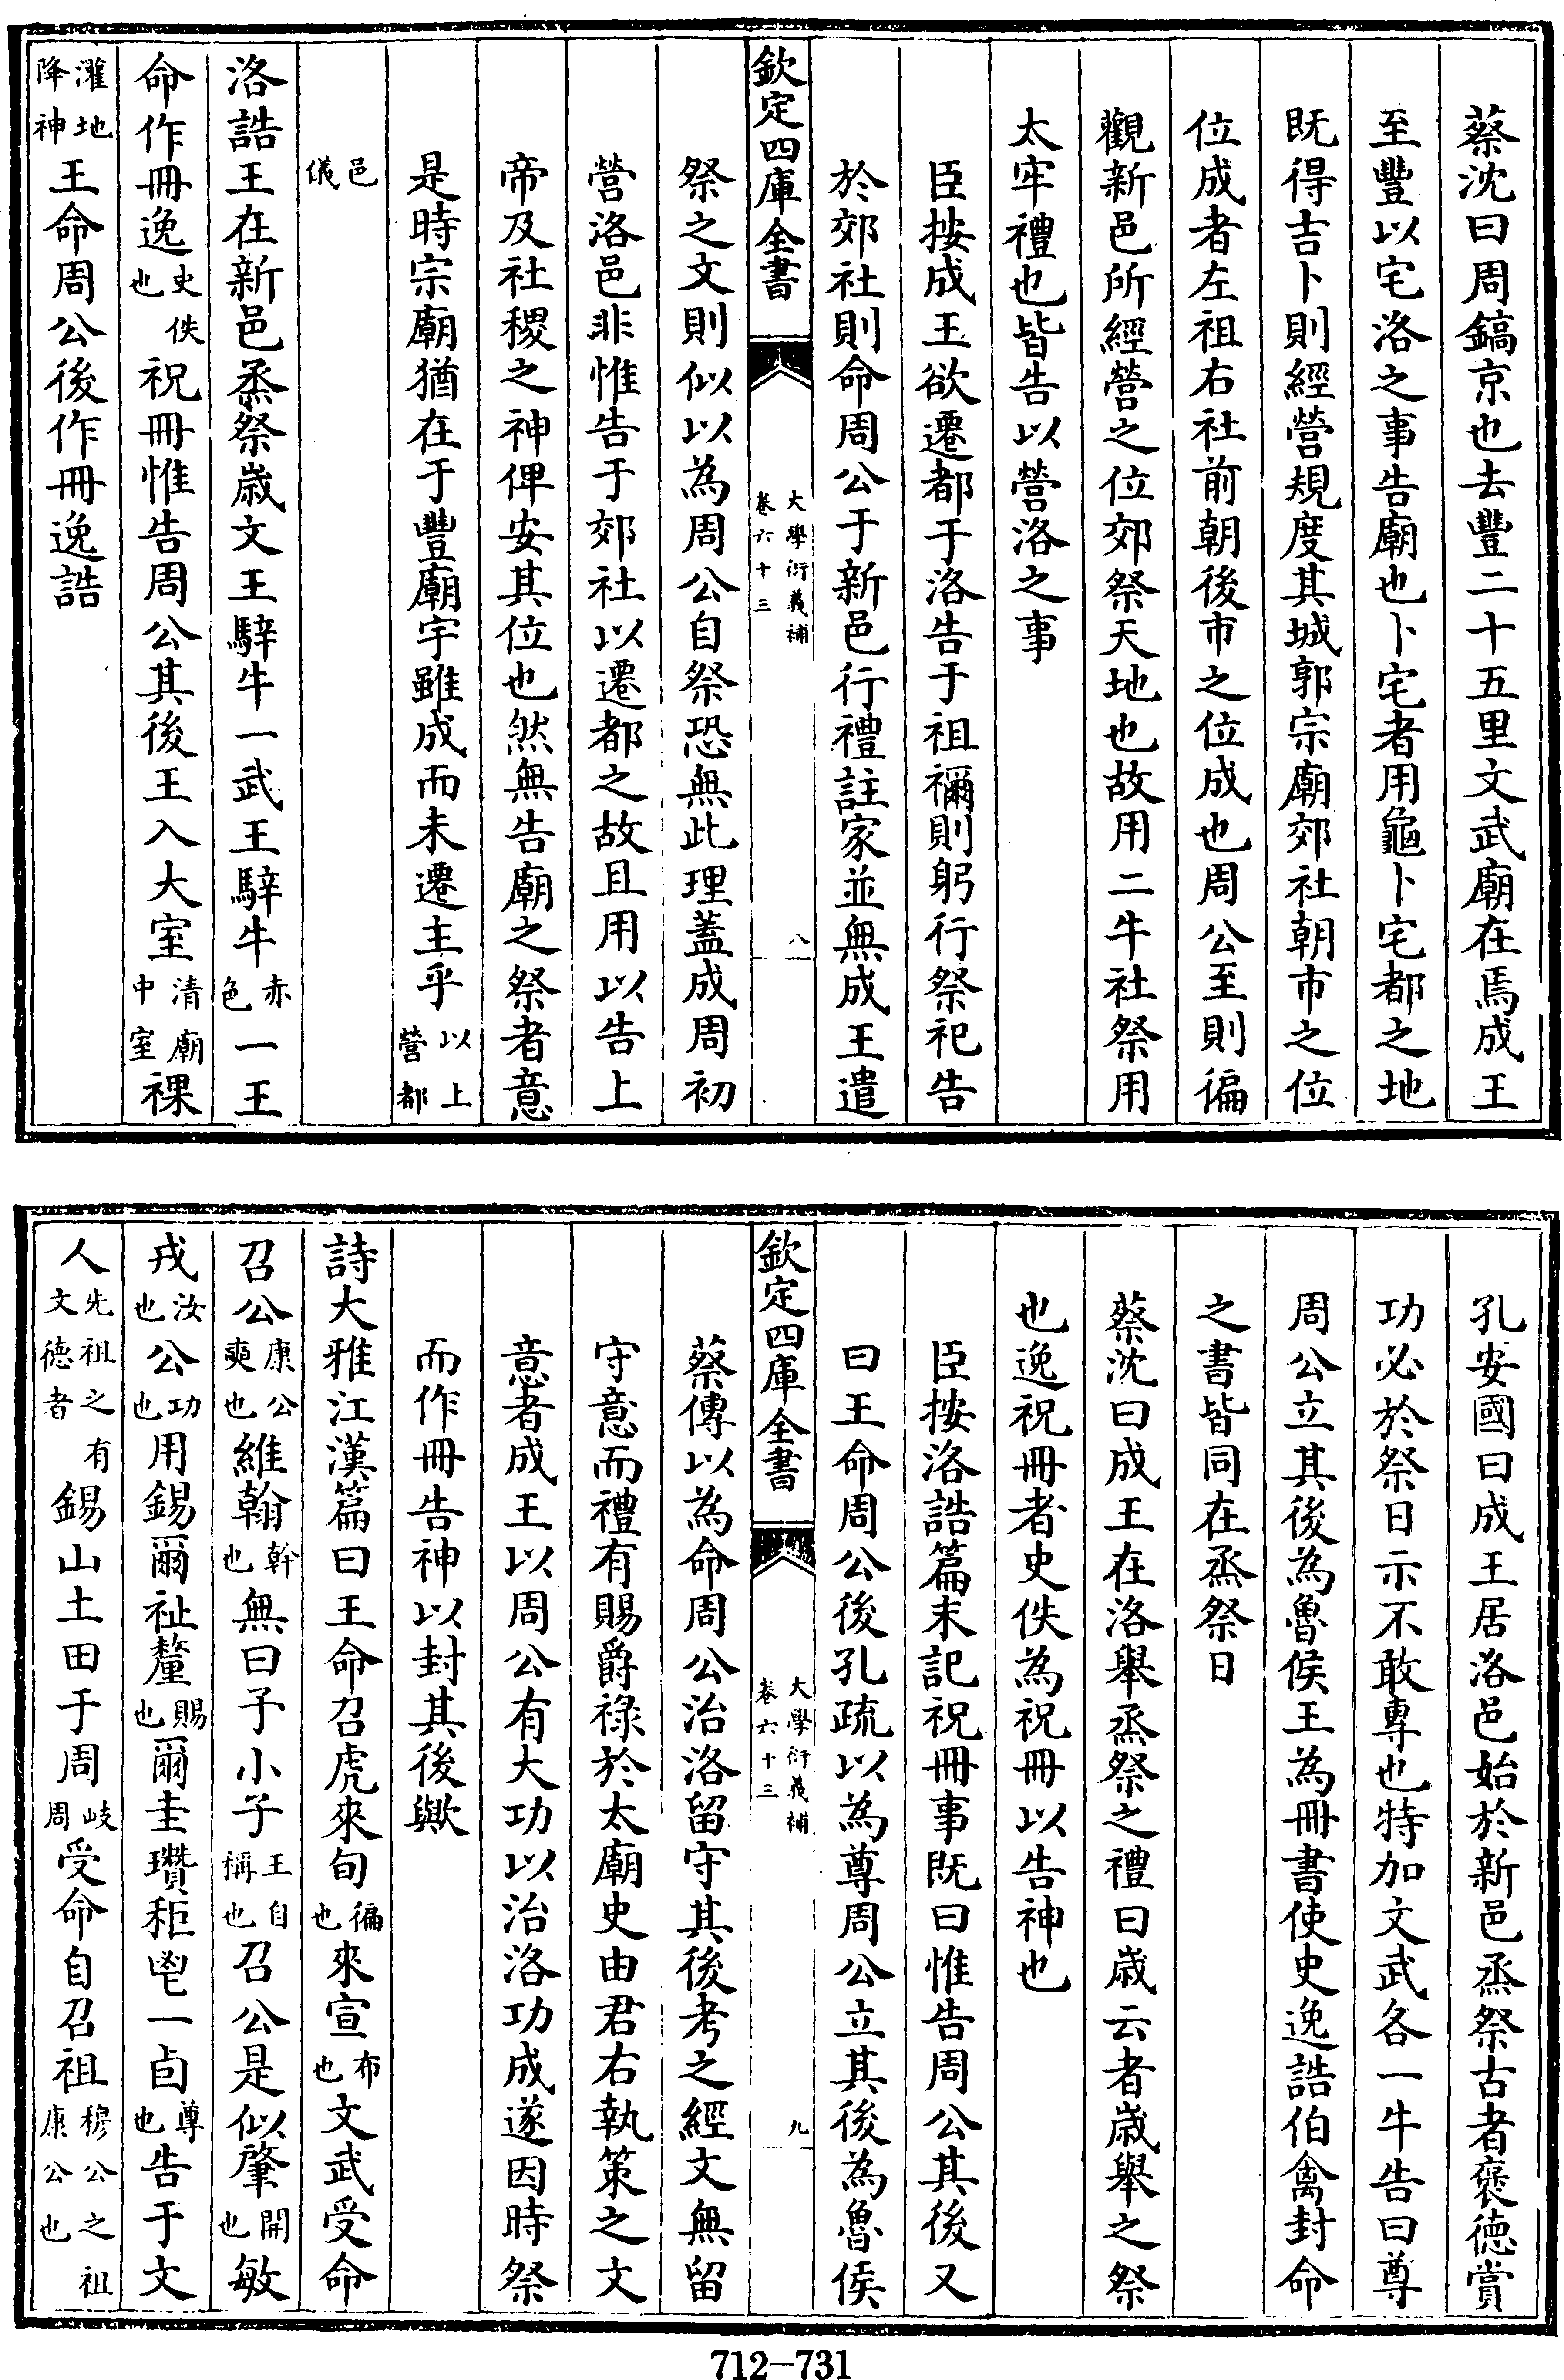 蔡沈曰周鎬京也去豐二十五里文武廟在焉成王
至豐以宅洛之事告廟也卜宅者用龜卜宅都之地
既得吉卜則經營規度其城郭宗廟郊社朝市之位
位成者左祖右社前朝後市之位成也周公至則徧
觀新邑所經營之位郊祭天地也故用二牛社祭用
太牢禮也皆告以營洛之事
臣按成王欲遷都于洛告于祖禰則躬行祭祀告
於郊社則命周公于新邑行禮註家並無成王遣
欽定四庫全書 大學衍義補 卷六十三 八
祭之文則似以為周公自祭恐無此理蓋成周初
營洛邑非惟告于郊社以遷都之故且用以告上
帝及社稷之神俾安其位也然無告廟之祭者意
是時宗廟猶在于豐廟宇雖成而未遷主乎以上營都
邑儀
洛誥王在新邑烝祭歲文王騂牛一武王騂牛赤色一王
命作冊逸史佚也祝冊惟告周公其後王入大室清廟中室祼
灌地降神王命周公後作冊逸誥
孔安國曰成王居洛邑始於新邑烝祭古者褒德賞
功必於祭日示不敢專也特加文武各一牛告曰尊
周公立其後為魯侯王為冊書使史逸誥伯禽封命
之書皆同在烝祭日
蔡沈曰成王在洛舉烝祭之禮曰歲云者歲舉之祭
也逸祝冊者史佚為祝冊以告神也
臣按洛誥篇末記祝冊事既曰惟告周公其後又
曰王命周公後孔疏以為尊周公立其後為魯侯
欽定四庫全書 大學衍義補 卷六十三 九
蔡傳以為命周公治洛留守其後考之經文無留
守意而禮有賜爵祿於太廟史由君右執策之文
意者成王以周公有大功以治洛功成遂因時祭
而作冊告神以封其後歟
詩大雅江漢篇曰王命召虎來旬徧也來宣布也文武受命
召公康公奭也維翰幹也無曰予小子王自稱也召公是似肇開也敏
戎汝也公功也用錫爾祉釐賜也爾圭瓚秬鬯一卣尊也告于文
人先祖之有文德者錫山土田于周岐周受命自召祖穆公之祖康公也
712-731